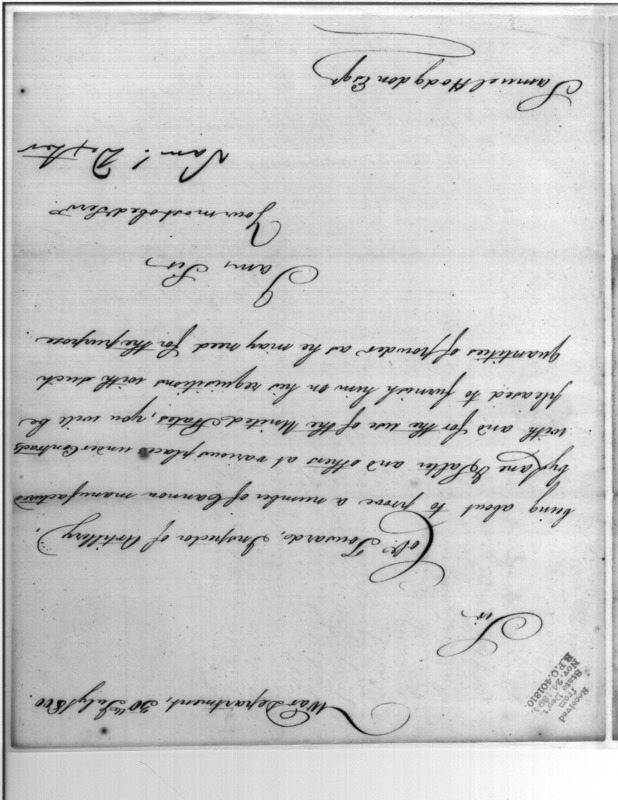 War Department, 30th July 1800.
Sir
Colo. Toussard, Inspector of Artillery,
being about to prove a number of Cannon manufactured
by Lane & Salter and others at various places under Contracts
with and for the use of the United States, you will be
pleased to furnish him on his requisitions with such
quantities of powder as he may need for the purpose.
I am, Sir
Your most obed Servt.
Sam.l Dexter
Samuel Hodgdon Esqr
Received
from
State Dep't.
Nov. 24, 189
R.P.O. 401810.